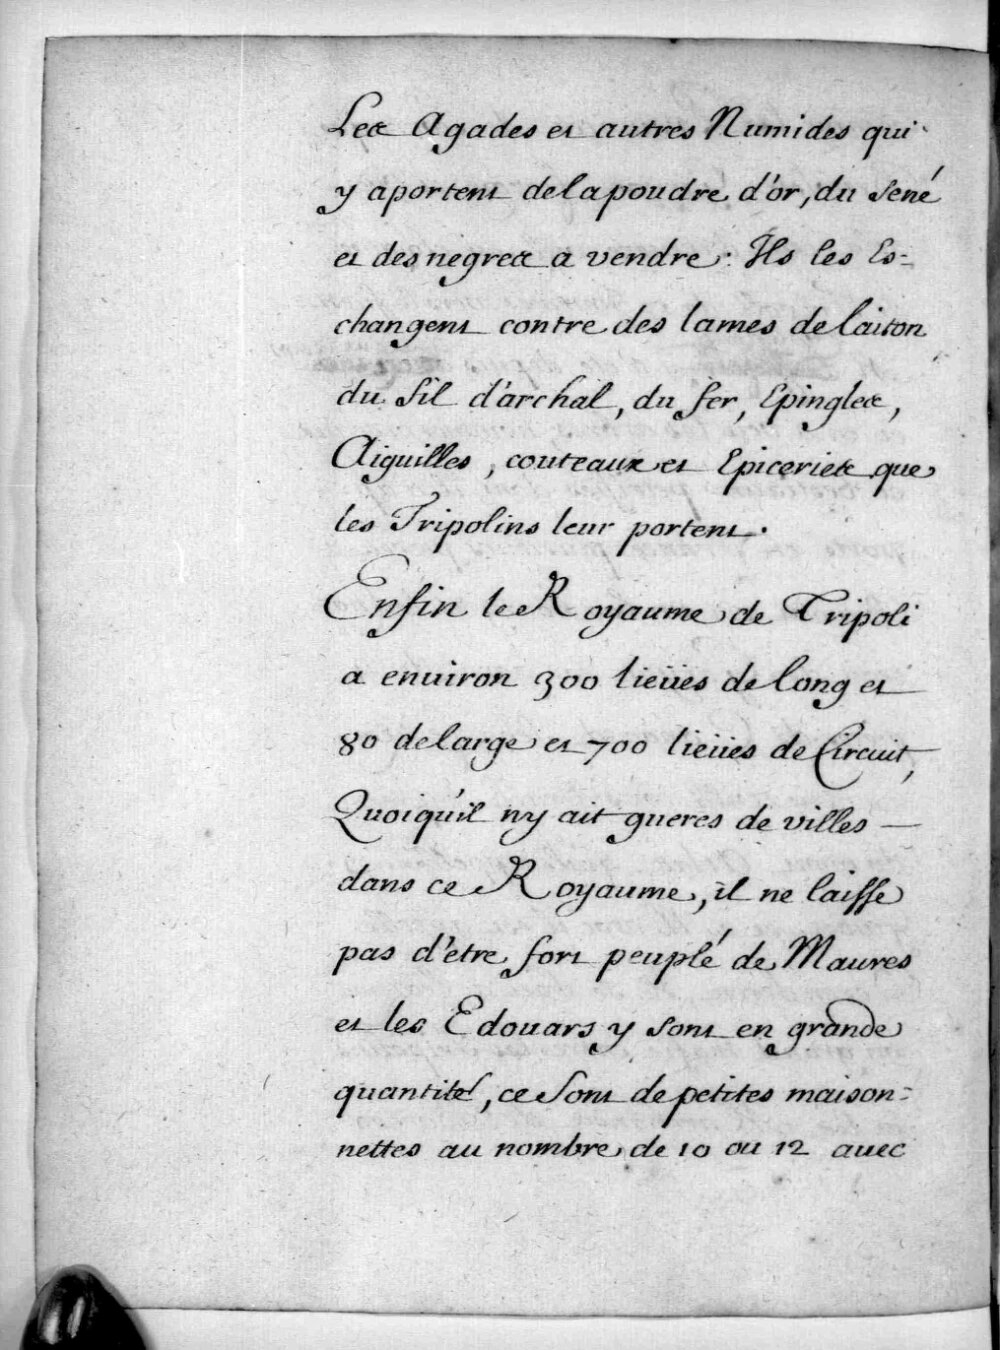 Les Agades et autres Numides qui
y aportent de la poudre d'or, du sené
et des negres a vendre : Ils les Es-
changent contre des lames de laiton
du fil d'archal, du fer, Epingles,
Aiguilles, couteaux et Epiceries que
les Tripolins leur portent.
Enfin le Royaume de Tripoli
a enuiron 300 lieües de long et
80 de large et 700 lieües de Circuit,
Quoiqu'il ny ait gueres de villes —
dans ce Royaume, il ne laisse
pas d'être fort peuplé de Maures
et les Edouars y sont en grande
quantité, ce sont de petites maison-
nettes au nombre de 10 ou 12 auec